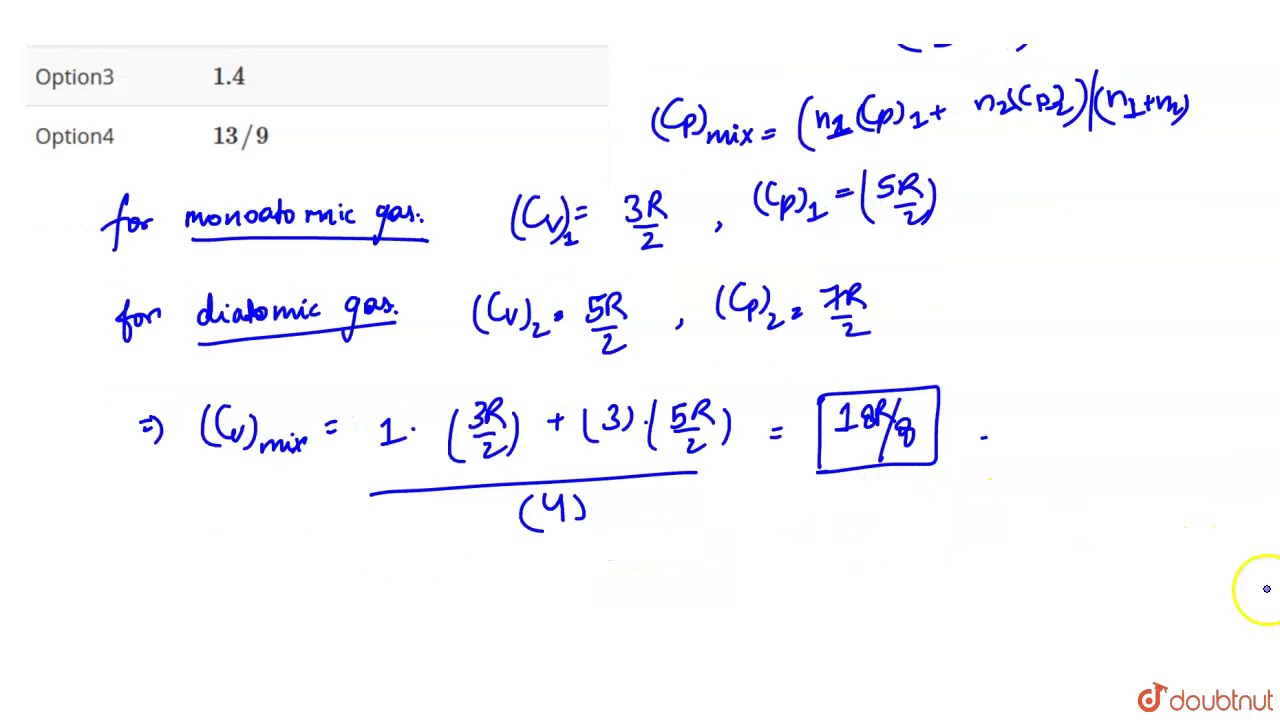 Option3 1.4
Option4 13/9
(Cp)mix = (n1(Cp)1 + n2(Cp)2)/(n1+n2)
for monoatomic gas. (Cv)1 = 3R/2 , (Cp)1 = (5R/2)
for diatomic gas. (Cv)2 = 5R/2 , (Cp)2 = 7R/2
⇒ (Cv)mix = 1·(3R/2) + (3)·(5R/2) = 18R/8
(4)
doubtnut